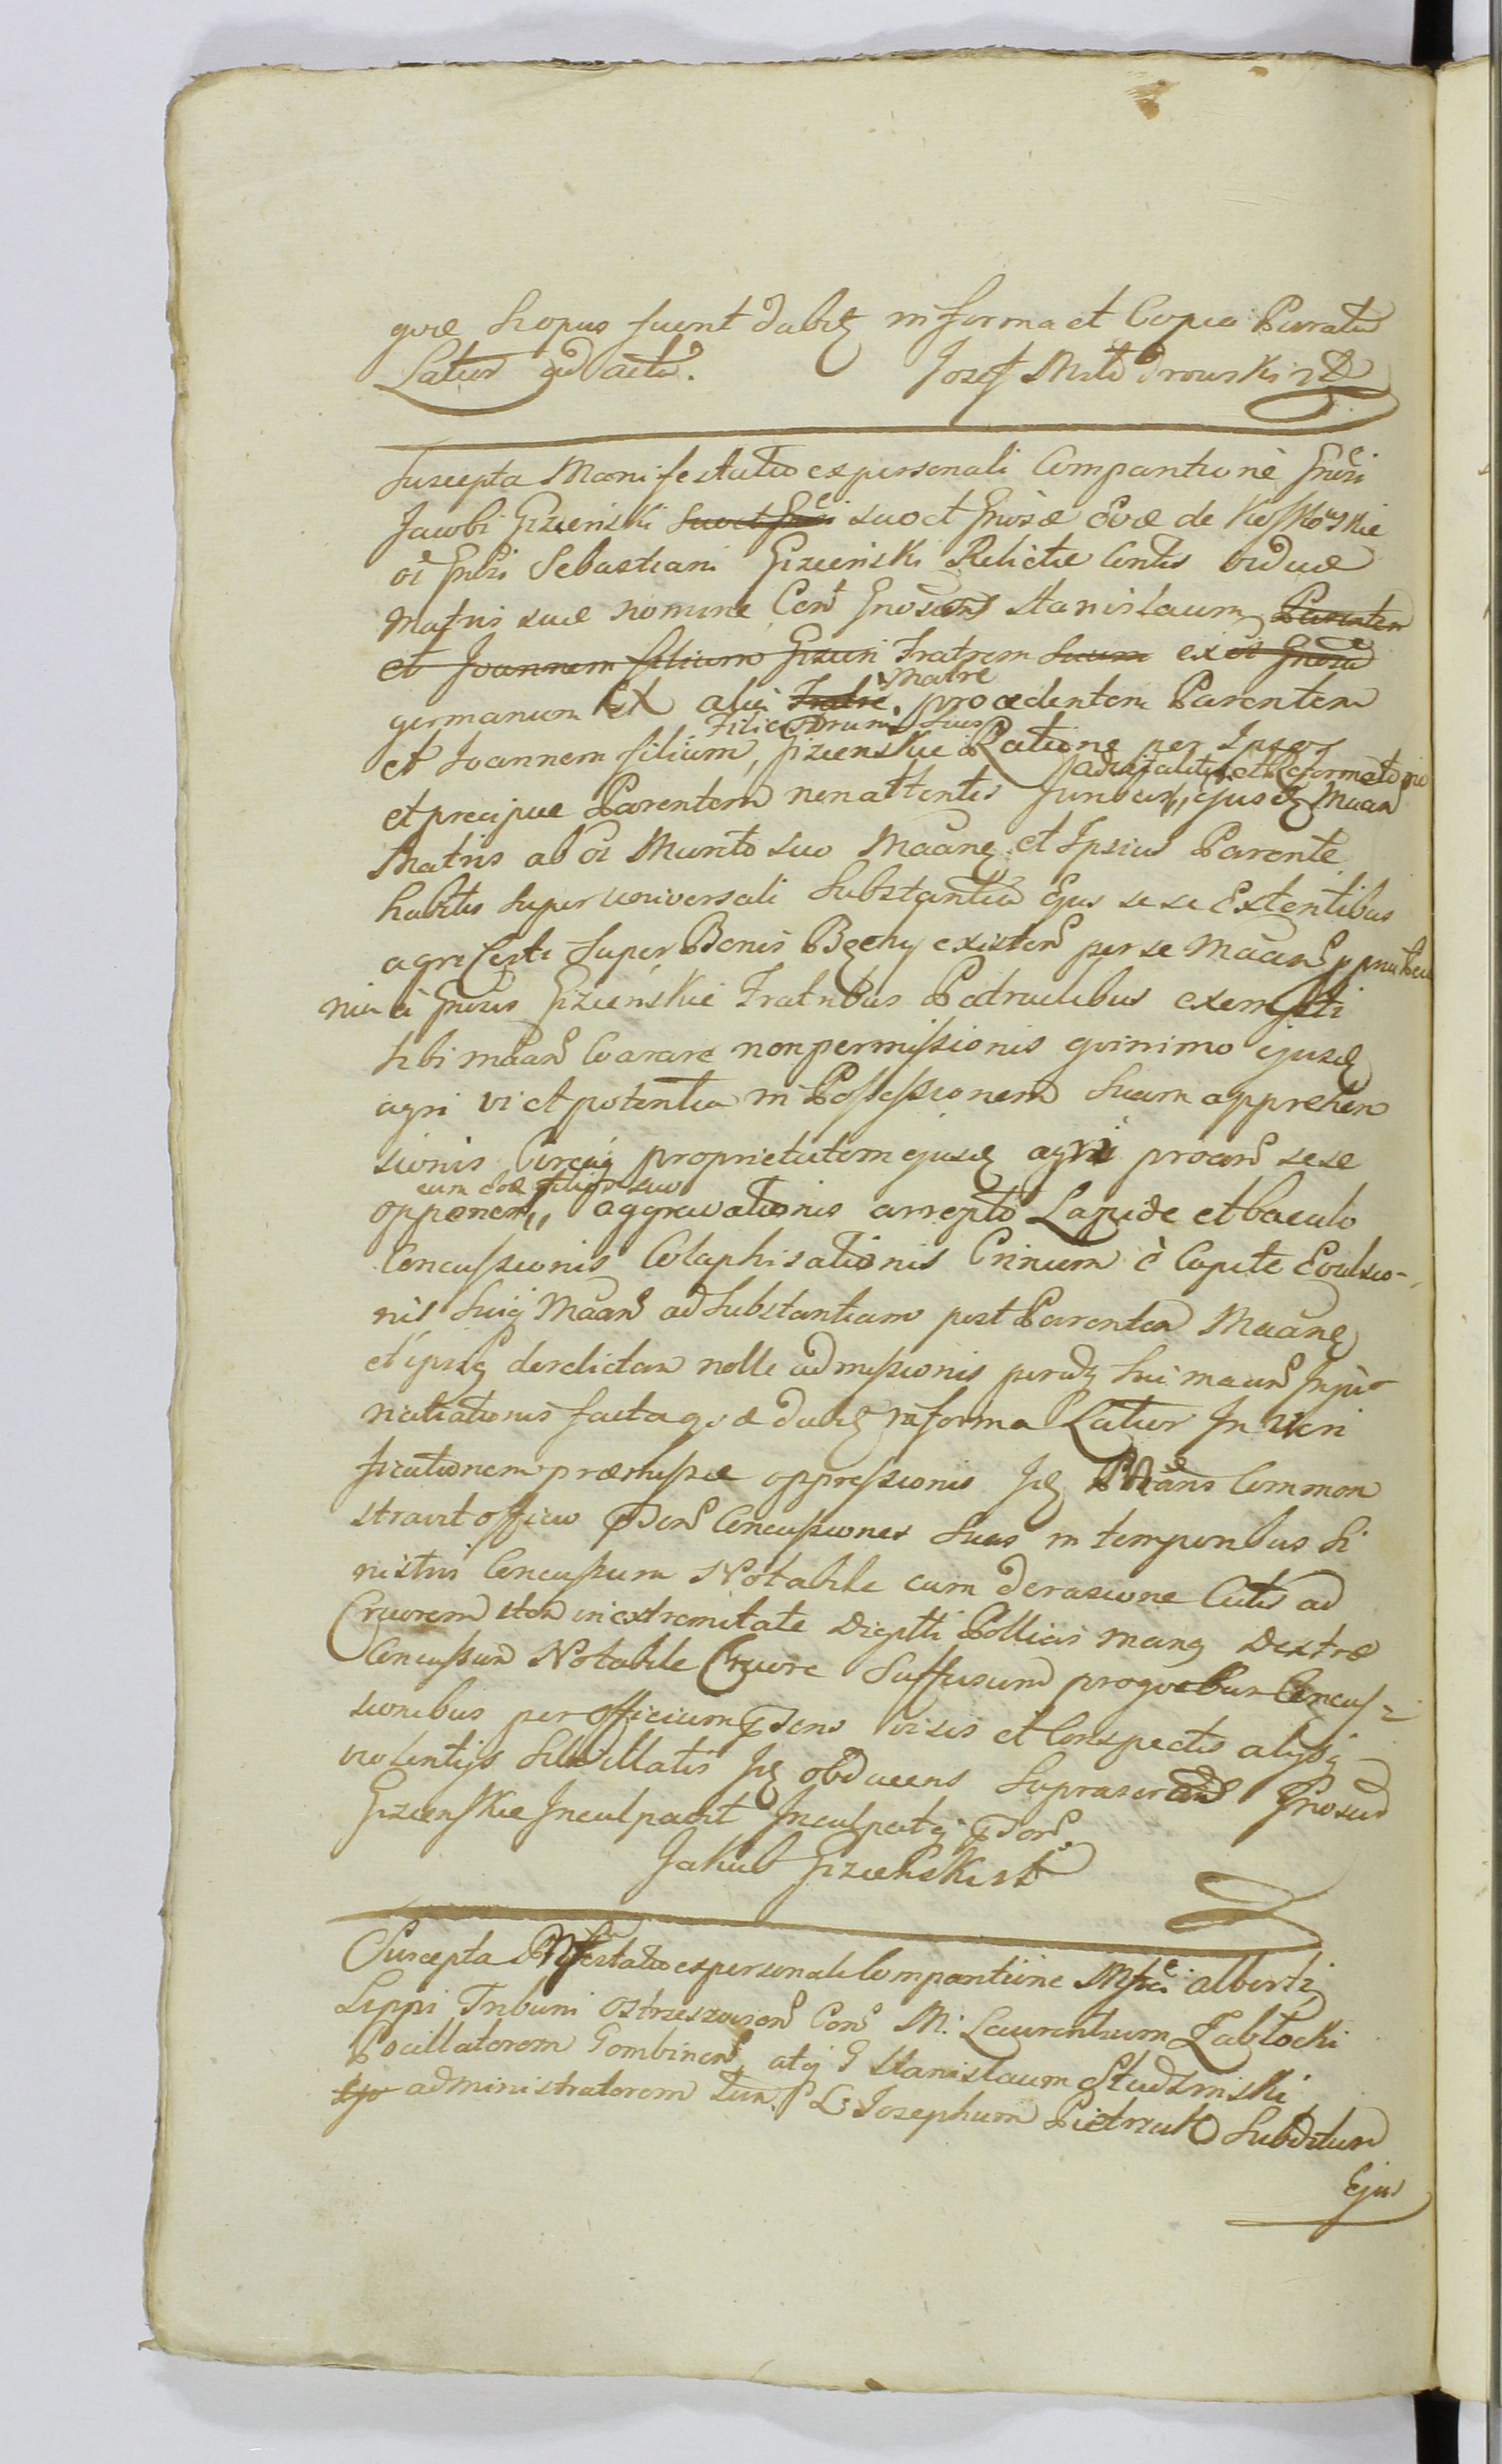 quæ si opus fuerit dabitȝ in forma et Copia Parata
Latius ad acta. Jozef
Suscepta Manifestatio ex personali Comparitione Gnosi
Jacobi Gizieński suo et Gnosæ Evæ de
oi Gnosi Sebastiani Gizieński Relictæ Contis viduæ
Matris suæ nomine Conȓ Gnosum Stanislaum Parentem
et Joannem filium Gizien Fratrem suum ex oi Gnosa
germanum ex alia Fratre Matre procedentem Parentem
et Joannem filium, Gizienskie Filios Suos Ratione per Ipsos
et precipue Parentem non attentis Juribus advitalitatis et Reformatorio ejusdȝ Maan
Matris ab oi Marito suo Maanȝ et Ipsius Parente
habitis super universali Substantia Ejus sese Extentibus
agri Certi super Bonis Bęchy existenȓ per se Maanȓ
nia a Gnosis Gizienskie Fratribus Patruelibus exempti
sibi maanȓ Coarare non permissionis quinimo ejusdȝ
agri vi et potentia in Possessionem suam apprehen
sionis Circaq proprietatem ejusdȝ agri procanȓ sese
opponenȓ cum eode filio suo aggravationis arrepto Lapide et baculo
Concussionis Colaphisationis Crinium è Capite Evulsio-
nis Suiq Maanȓ ad Substantiam post Parentem Maanȝ
et ipsiȝ derelictam nolle admissionis peradȝ sui maanȓ Inju-
riationis facta quæ dabitȝ in forma Latius In Veri
ficationem præmissæ oppressionis Idȝ Maans Common
stravit officio pdenȓ Concussiones suas in temporibus si
nistris Concussum Notabile cum derasione Cutis ad
Cruorem item in extremitate Digiti Pollicis manȝ Dextræ
Concussum Notabile Cruore Suffusum pro quibus Concus=
sionibus per officium pdens visis et Conspectis alijsq
violentijs sibi illatis Idȝ obducens Suprascrip Gnosos
Gizienskie Inculpavit Inculpatq pdenȓ.
Jakub Gizieński
Suscepta Mfestatio ex personali Comparitione Mfci Alberti
Lippi Tribuni Ostrzeszoviens Conȓ M. Laurentium Zabłocki
Pocillatorem Gombinenȓ atq G Stanislaum Studzinski
ejo administratorem tum L. Josephum Pietrzak Subditum
Ejus